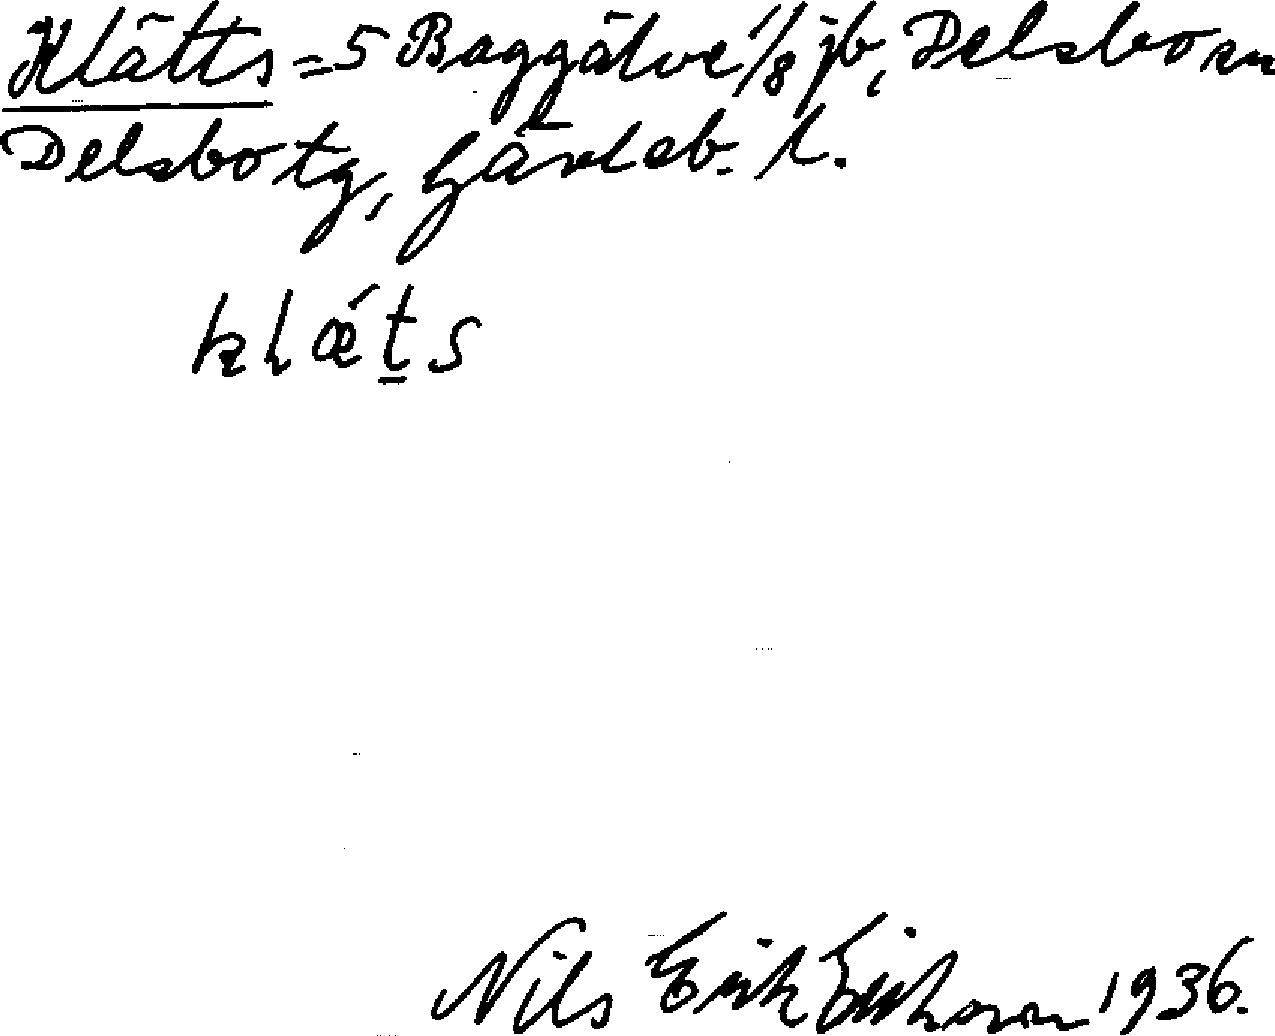 Klätts = 5 Baggälve 1/8 jb, Delsbo sn
Delsbo tg, Gävleb. l.
klǽt̲s
Nils Erik Eriksson 1936.